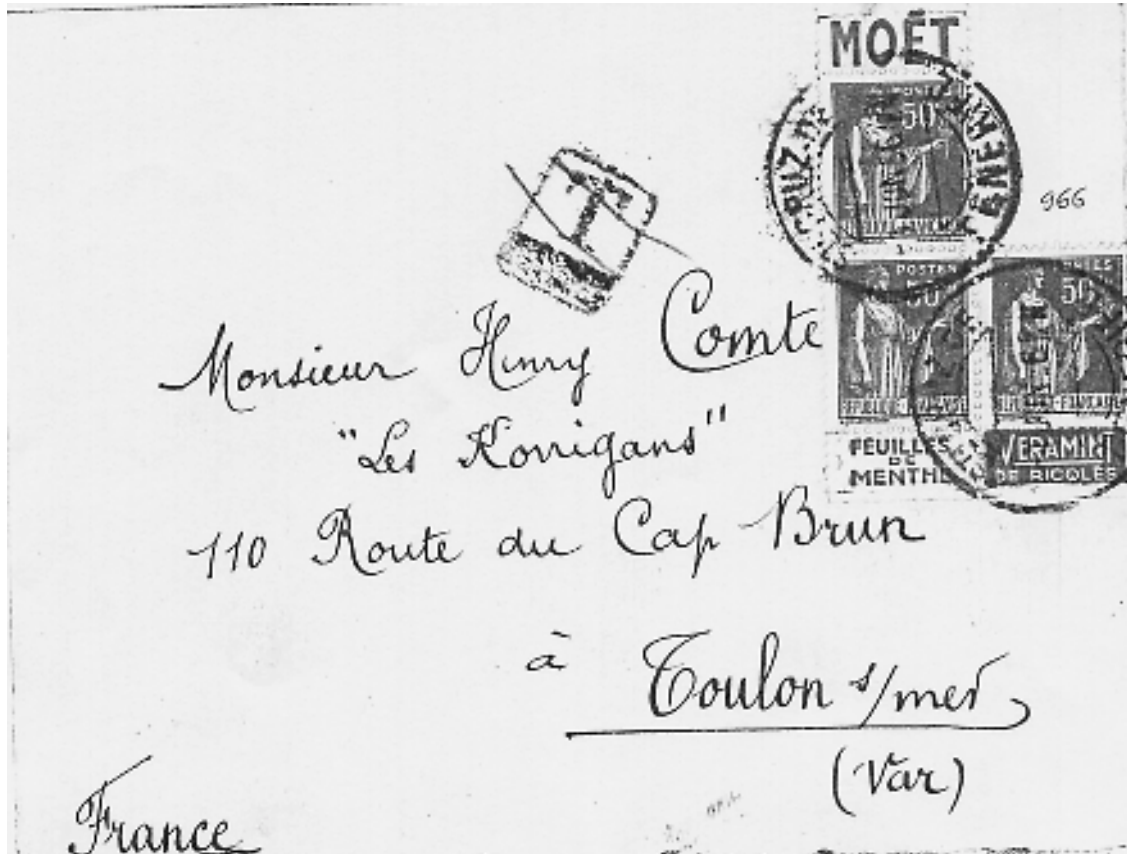 MOËT
POSTES
50
966
REPUBLIQUE FRANÇAISE
T
POSTES
50
POSTES
50
REPUBLIQUE FRANÇAISE
FRANÇAISE
FEUILLES
DE
MENTHE
VERAMINT
DE RICQLES
Monsieur Henry Comte
"Les Korrigans"
110 Route du Cap Brun
à Toulon s/mer
(Var)
France